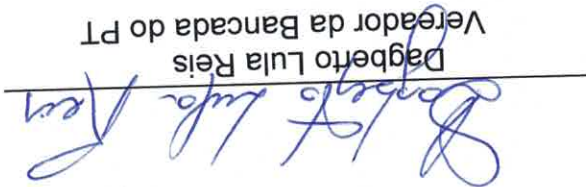 Dagberto Lula Reis
Dagberto Lula Reis
Vereador da Bancada do PT